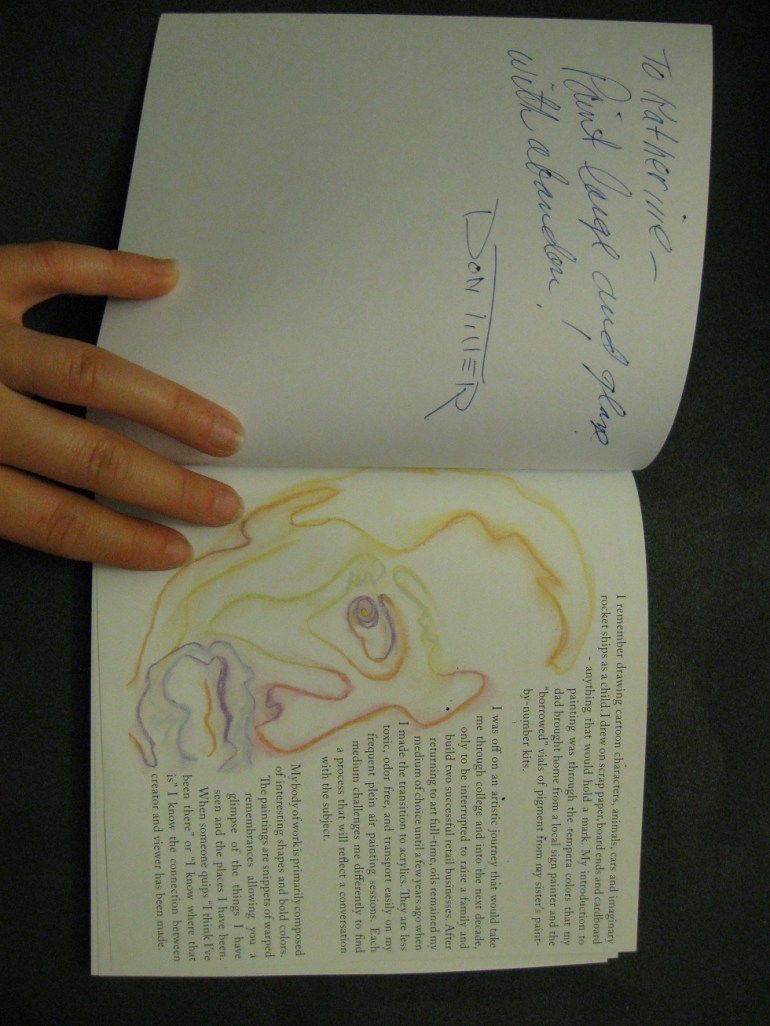 To Katherine –
Paint large and glaze
with abandon!
DON TILLER
I remember drawing cartoon characters, animals, cars and imaginary
rocket ships as a child. I drew on scrap paper, board ends and cardboard
- anything that would hold a mark. My introduction to
painting was through the tempera colors that my
dad brought home from a local sign painter and the
"borrowed" vials of pigment from my sister's paint-
by-number kits.
I was off on an artistic journey that would take
me through college and into the next decade,
only to be interrupted to raise a family and
build two successful retail businesses. After
returning to art full-time, oils remained my
medium of choice until a few years ago when
I made the transition to acrylics. They are less
toxic, odor free, and transport easily on my
frequent plein air painting sessions. Each
medium challenges me differently to find
a process that will reflect a conversation
with the subject.
My body of work is primarily composed
of interesting shapes and bold colors.
The paintings are snippets of warped
remembrances allowing you a
glimpse of the things I have
seen and the places I have been.
When someone quips "I think I've
been there" or "I know where that
is" I know the connection between
creator and viewer has been made.